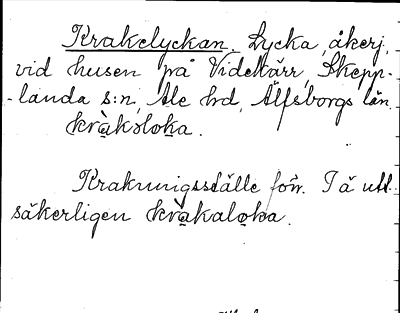 Krakelyckan. Lycka, åkerj.
vid husen på Videkärr, Skepp-
-landa s:n, Ale hd, Älfsborgs län.
kràkəloka.
Krakningsställe förr. I ä utt.
säkerligen kràkaloka.